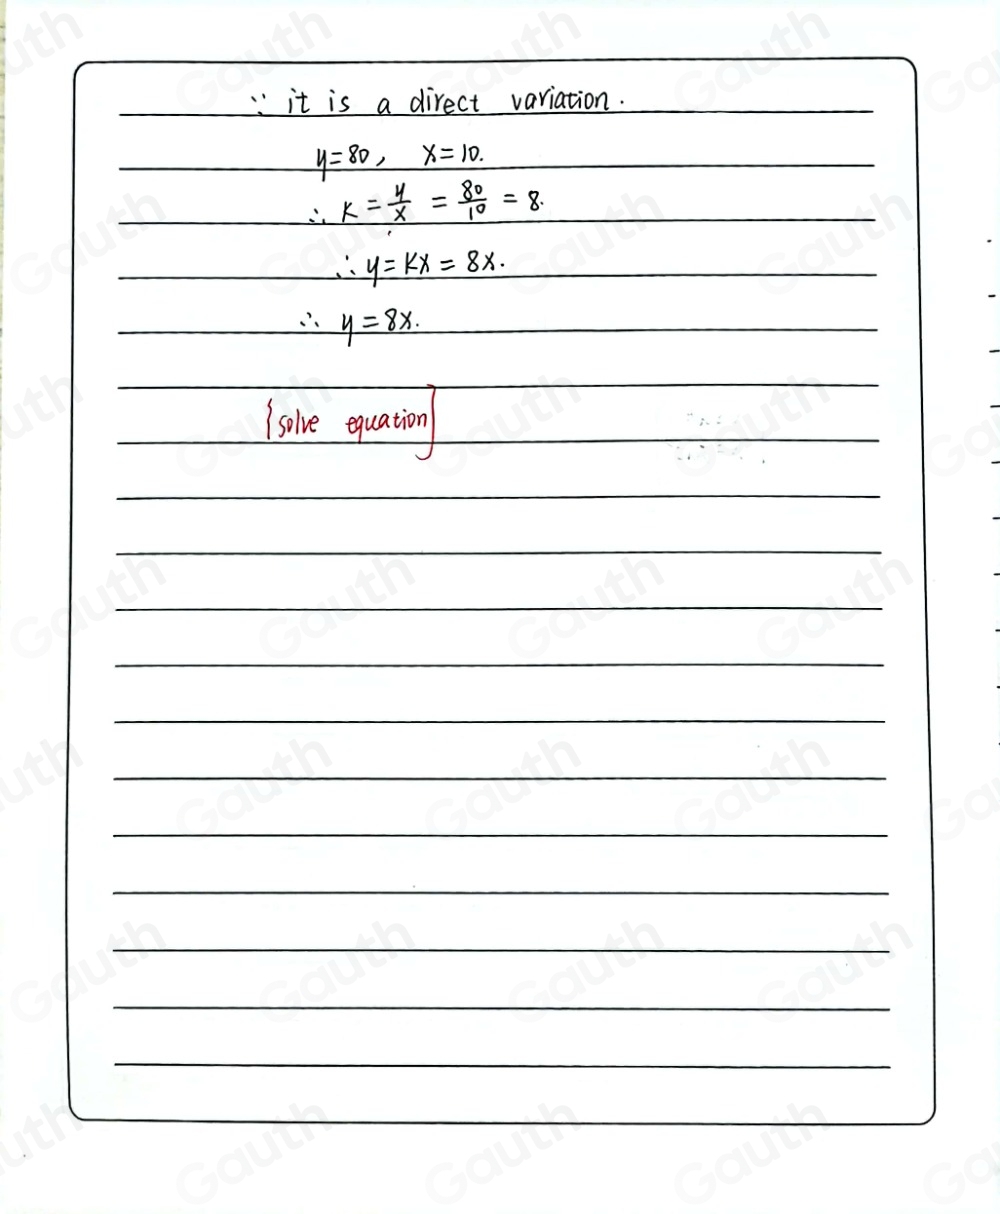 ∵ it is a direct variation.
y=80, x=10.
∴ K = y/x = 80/10 = 8.
∴ y = Kx = 8x.
∴ y = 8x.
{solve equation]
Gauth